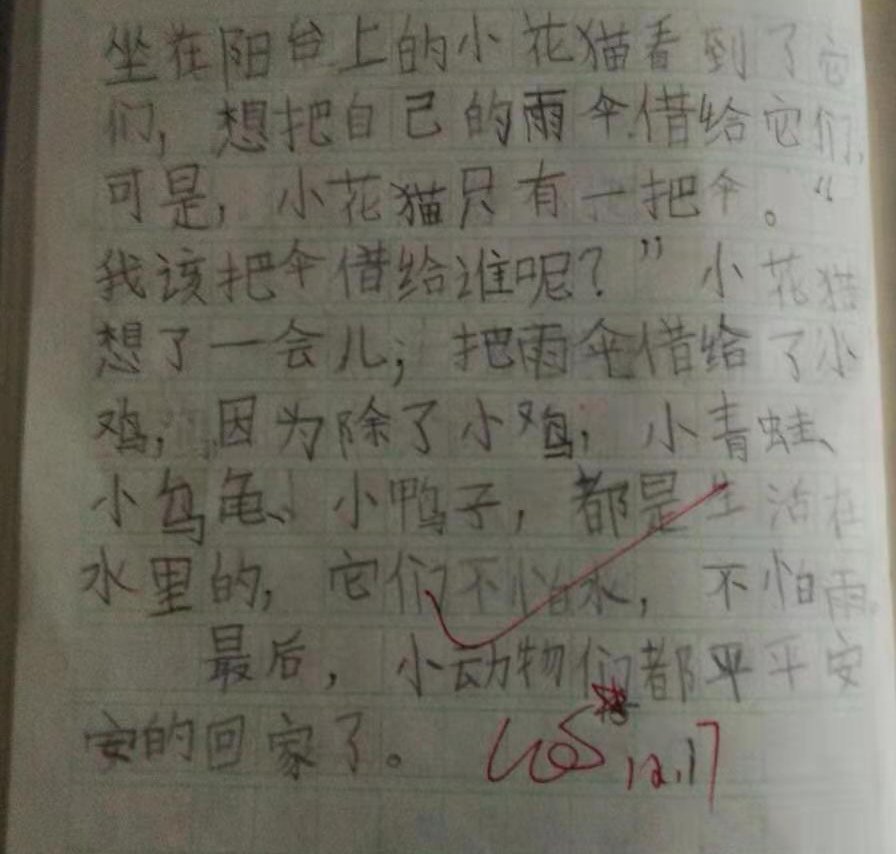 坐在阳台上的小花猫看到了它
们,想把自己的雨伞借给它们,
可是,小花猫只有一把伞。“
我该把伞借给谁呢?”小花猫
想了一会儿,把雨伞借给了小
鸡,因为除了小鸡,小青蛙、
小乌龟、小鸭子,都是生活在
水里的,它们不怕水,不怕雨。
最后,小动物们都平平安
安的回家了。
12.17